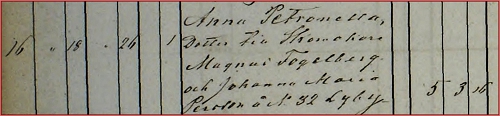 Anna Petronella,
16 " 18 " 26 1 Dotter till Skomakare
Magnus Fogelberg
och Johanna Maria 5 3 16
å N 32 Lyby